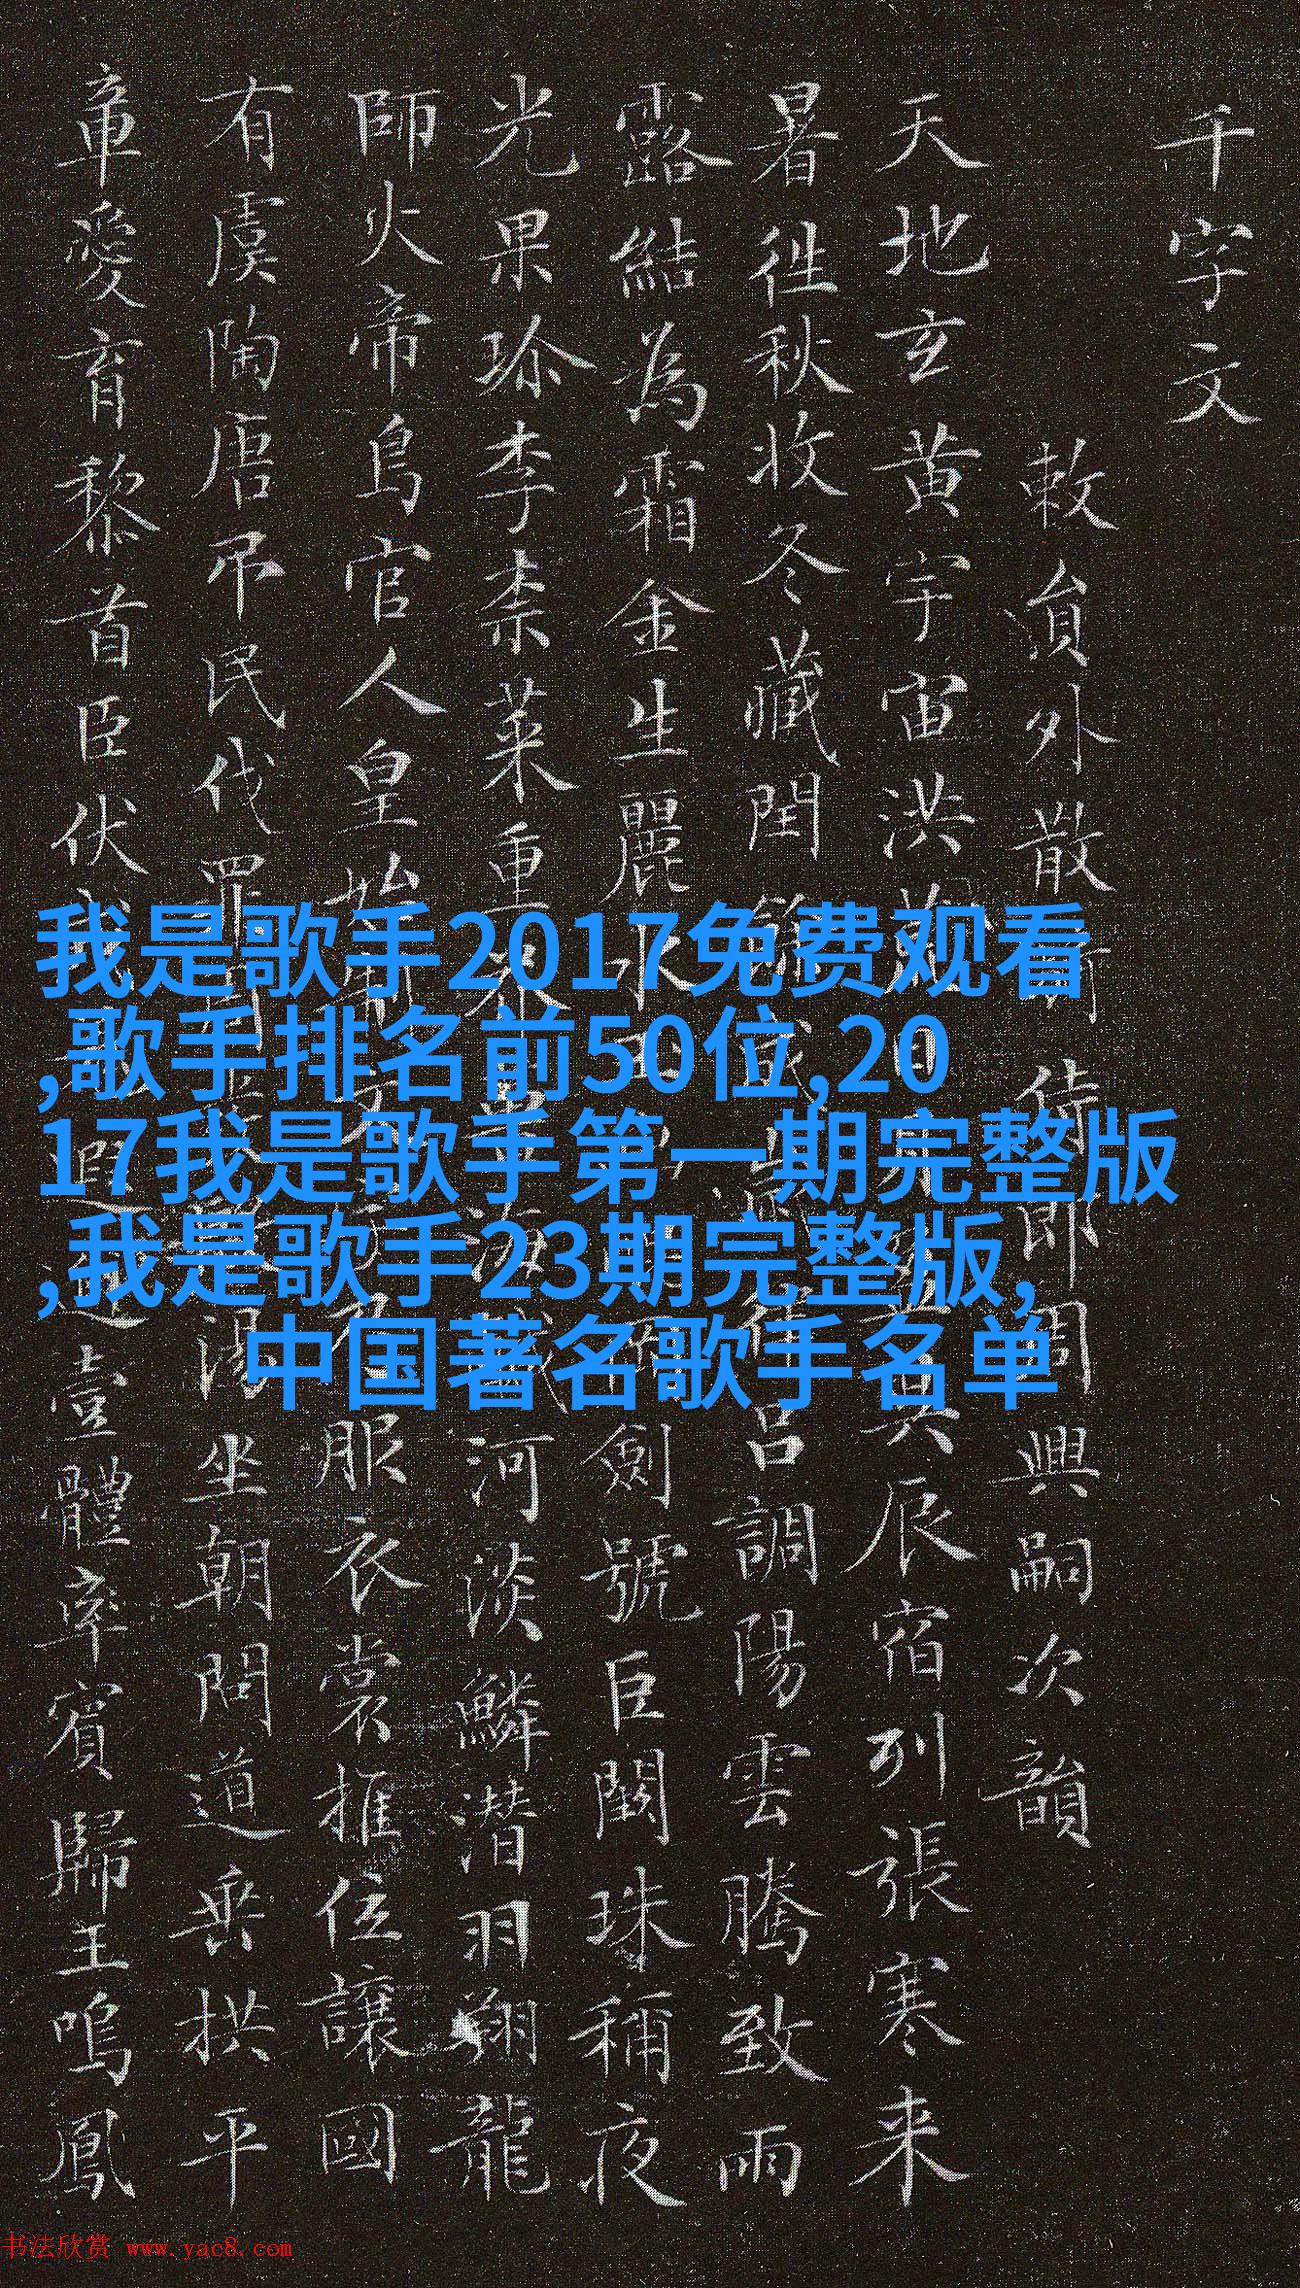 千字文
敕員外散侍郎周興嗣次韻
天地玄黄宇宙洪辰宿列張寒来
暑徃秋收冬藏閏吕調陽雲騰致雨
露結為霜金生麗水劍號巨闕珠稱夜
光果珎李柰菜重河淡鱗潜羽翔龍
師火帝鳥官人皇始制服衣裳推位讓國
有虞陶唐吊民伐罪湯坐朝問道垂拱平
章愛育黎首臣伏遐迩壹體率賓歸王鳴鳳
我是歌手2017免费观看
,歌手排名前50位,20
17我是歌手第一期完整版
,我是歌手23期完整版,
中国著名歌手名单
书法欣赏 www.yac8.com